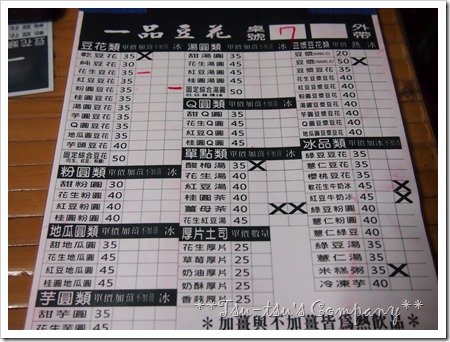 一品豆花 桌號 7 外帶
豆花類 單價 加薑 不加薑 冰
乾豆花 35
純豆花 30
花生豆花 35
紅豆豆花 35
粉圓豆花 35
湯圓豆花 35
芋圓豆花 35
Q圓豆花 35
地瓜圓豆花 35
芋頭豆花 40
固定綜合豆花 50
粉圓類 單價 加薑 不加薑 冰
甜粉圓 30
花生粉圓 40
紅豆粉圓 40
桂圓粉圓 40
地瓜圓類 單價 加薑 不加薑 冰
甜地瓜圓 35
花生地瓜圓 45
紅豆地瓜圓 45
桂圓地瓜圓 45
芋圓類 單價 加薑 不加薑 冰
甜芋圓 35
花生芋圓 45
湯圓類 單價 加薑 不加薑 冰
甜湯圓 35
花生湯圓 40
紅豆湯圓 40
桂圓湯圓 40
固定綜合湯圓 50
Q圓類 單價 加薑 不加薑 冰
甜Q圓 35
花生Q圓 45
紅豆Q圓 45
桂圓Q圓 45
單點類 單價 加薑 不加薑 冰
酸梅湯 35
花生湯 35
紅豆湯 35
桂圓茶 40
薑母茶 40
花生紅豆湯 45
厚片土司 單價 數量
花生厚片 25
草莓厚片 25
奶油厚片 25
奶酥厚片 25
香蒜厚片 25
豆漿豆花類 單價 熱 冰
豆漿 20
豆漿 50
豆漿豆花 35
花生豆漿豆花 40
紅豆豆漿豆花 40
粉圓豆漿豆花 40
湯圓豆漿豆花 40
芋圓豆漿豆花 40
Q圓豆漿豆花 40
地瓜圓豆漿豆花 40
冰品類 單價 冰
綠豆豆花 35
薏仁豆花 35
櫻桃豆花 40
軟花生牛奶冰 45
紅豆牛奶冰 45
綠豆粉圓 40
薏仁粉圓 40
薏仁綠豆 40
綠豆湯 35
薏仁湯 35
米糕粥 35
冷凍芋 40
＊加薑與不加薑皆為熱飲品＊
**Tsu-tsu's Company**